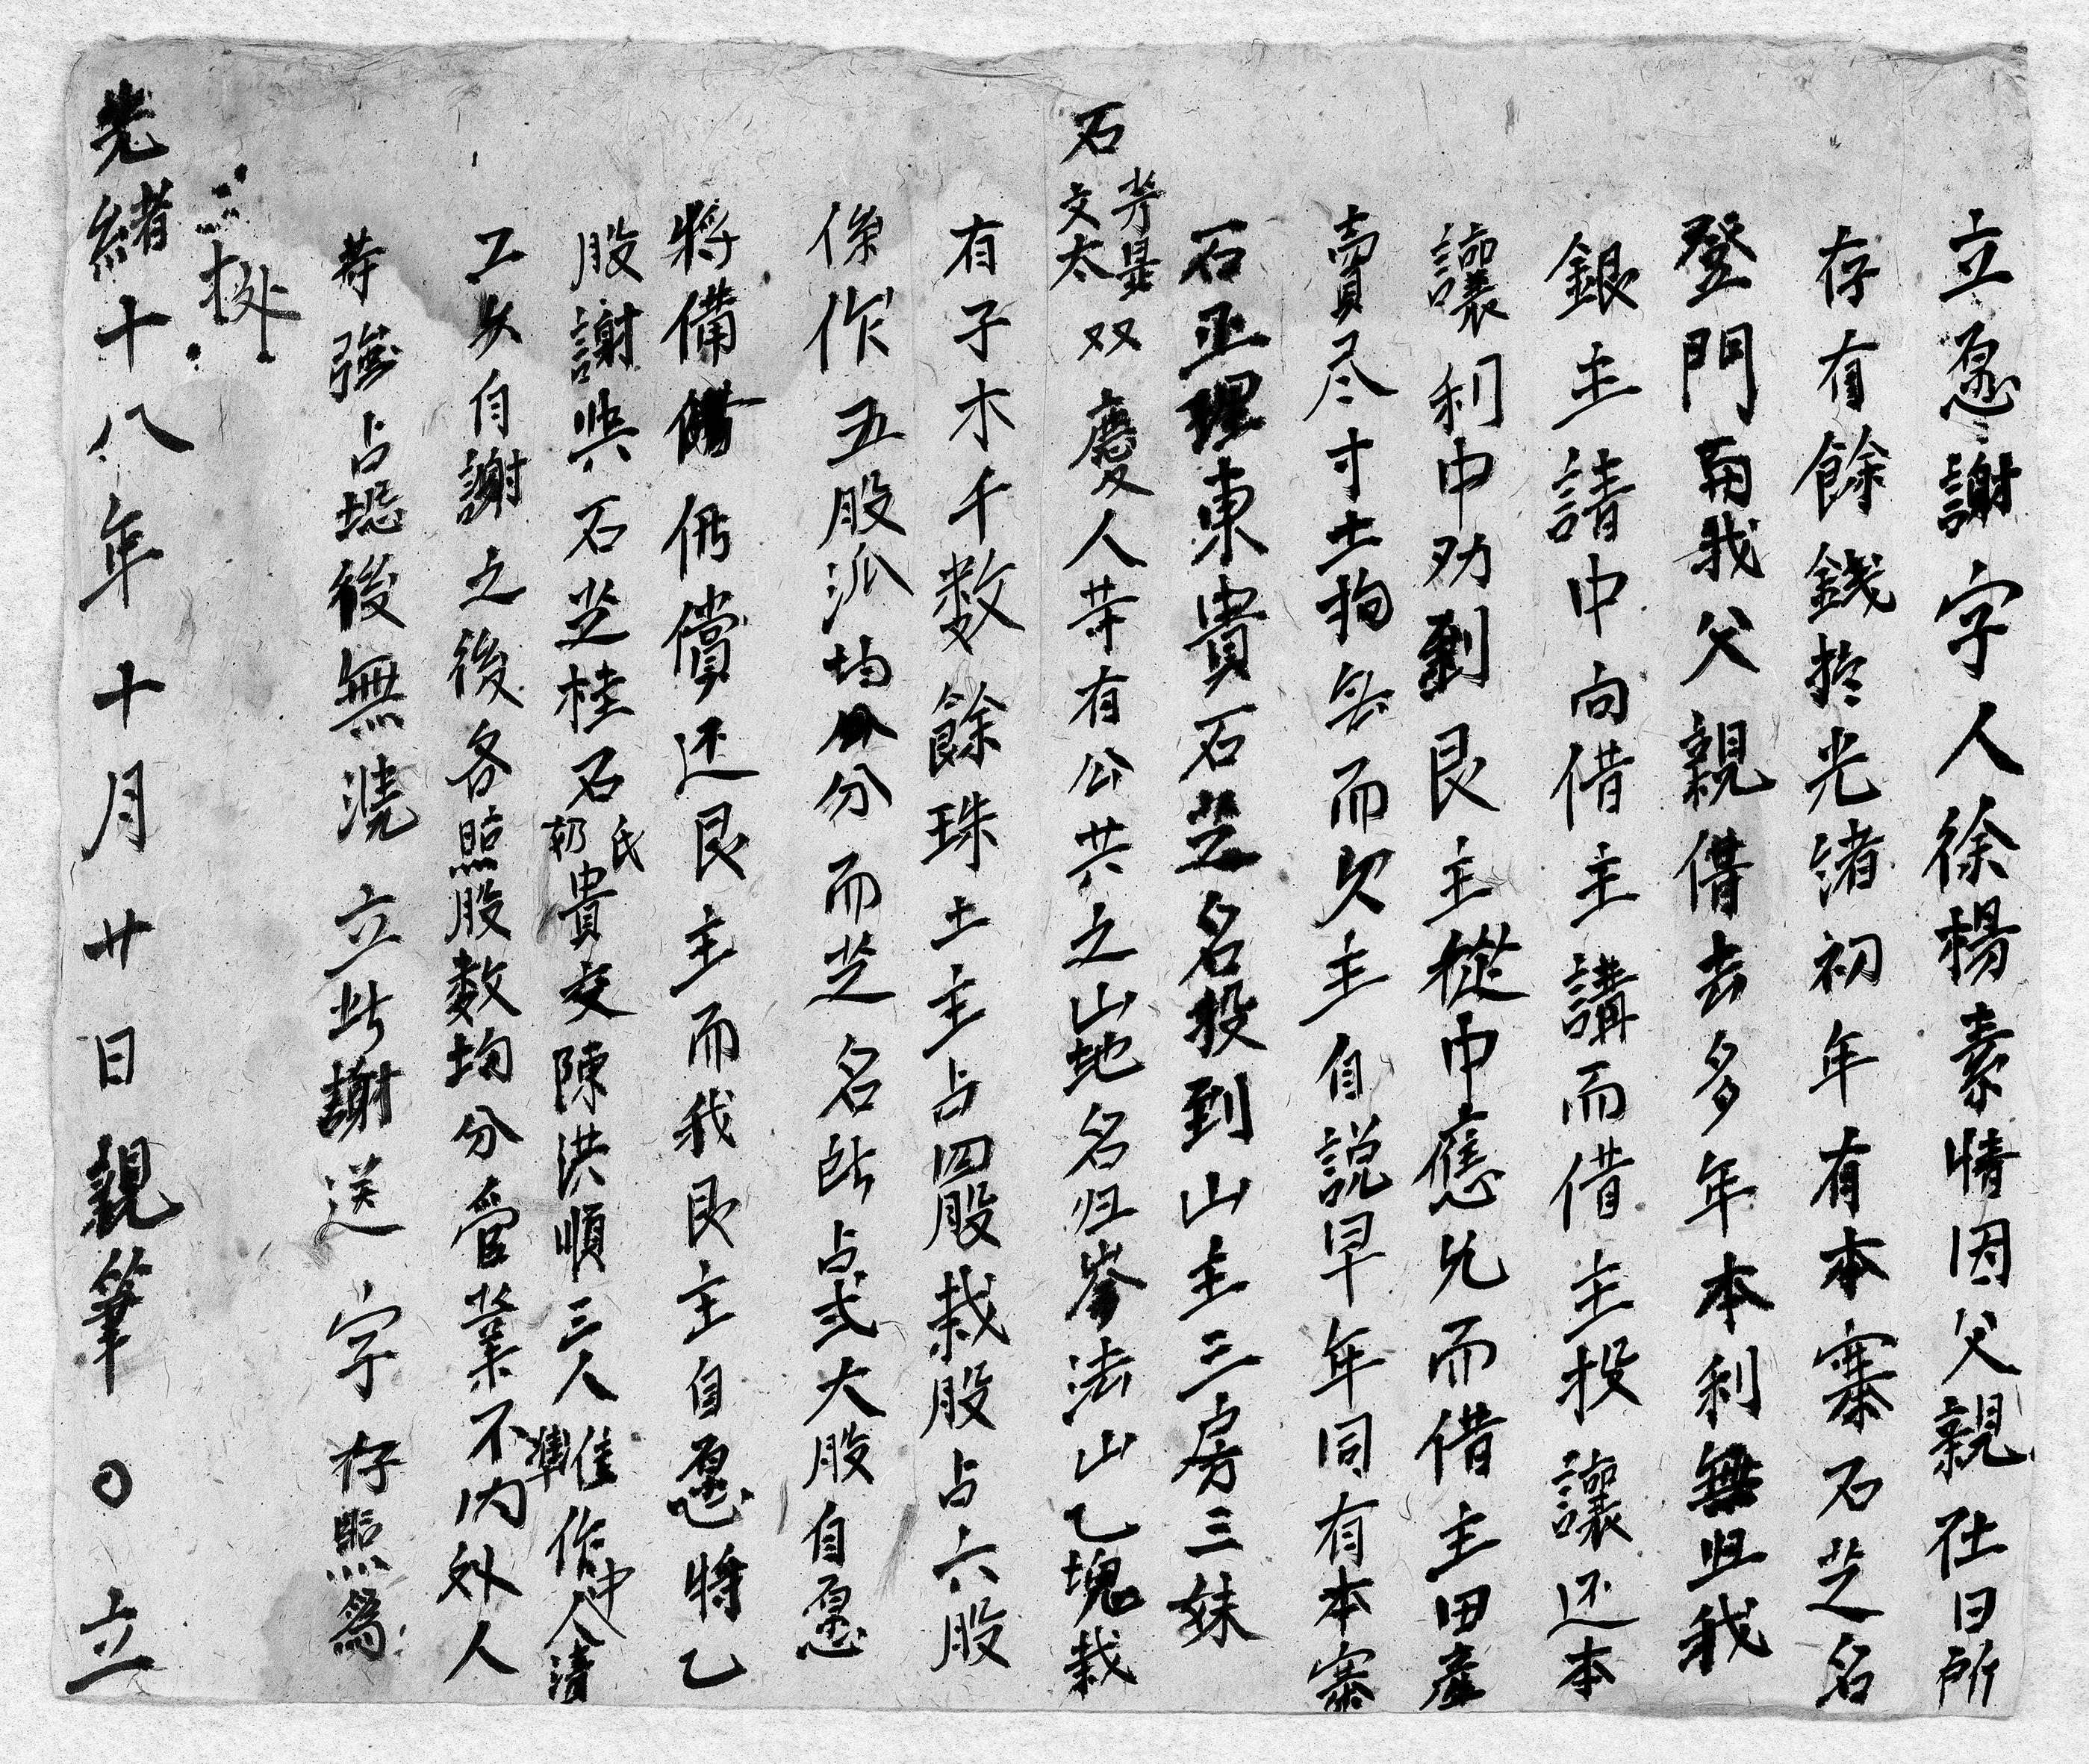 立愿謝字人徐楊素情因父親在日所
存有餘錢於光緒初年有本寨石芝名
登門問我父親借去多年本利無归我
銀主請中向借主講而借主投讓还本
讓利中劝到艮主從中應允而借主田產
賣尽寸土拘無而欠主自説早年同有本寨
石正理東貴石芝名投到山主三房三妹
石芳显文太双慶人等有公共之山地名归岑法山乙塊栽
有子木千数餘珠土主占四股栽股占六股
係作五股派均分而芝名所占式大股自愿
將備仍償还艮主而我艮主自愿將乙
股謝與石芝桂石氏奶貴交陳洪順三人準作中人清
工久自謝之後各照股数均分管業不内外人
等強占恐後無凴立此謝送字存照為
光緒十八年十月廿日親筆〇立